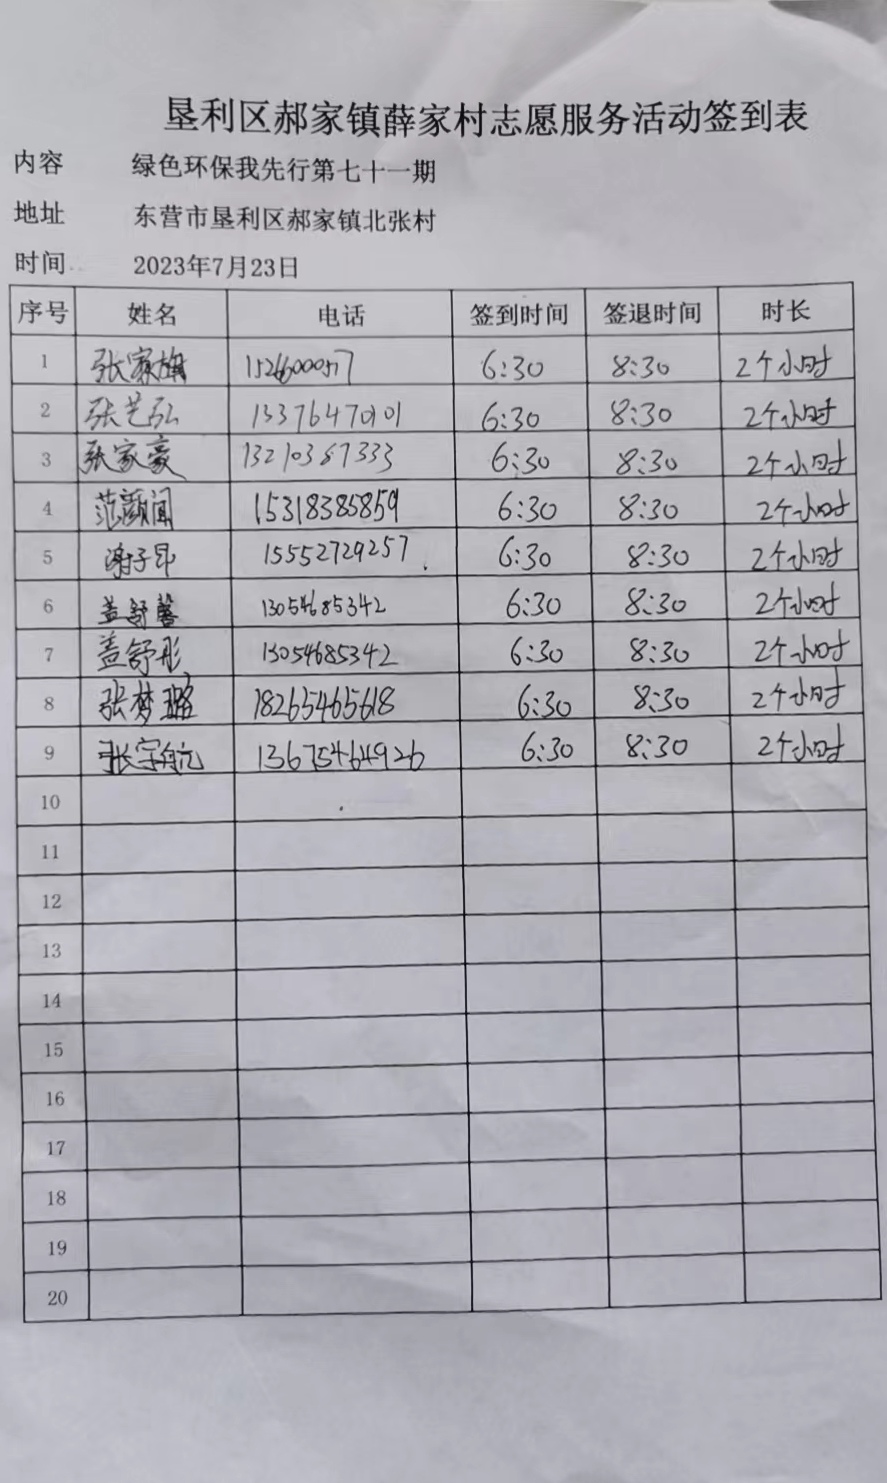 垦利区郝家镇薛家村志愿服务活动签到表
内容 绿色环保我先行第七十一期
地址 东营市垦利区郝家镇北张村
时间 2023年7月23日
序号 姓名 电话 签到时间 签退时间 时长
1 张家旗 6:30 8:30 2个小时
2 张艺弘 13376470101 6:30 8:30 2个小时
3 张家豪 13210387333 6:30 8:30 2个小时
4 范颜闻 15318385859 6:30 8:30 2个小时
5 谢子昂 15552729257 6:30 8:30 2个小时
6 盖舒馨 13054685342 6:30 8:30 2个小时
7 盖舒彤 13054685342 6:30 8:30 2个小时
8 张梦璐 18265465618 6:30 8:30 2个小时
9 张宇航 13675464926 6:30 8:30 2个小时
10
11
12
13
14
15
16
17
18
19
20